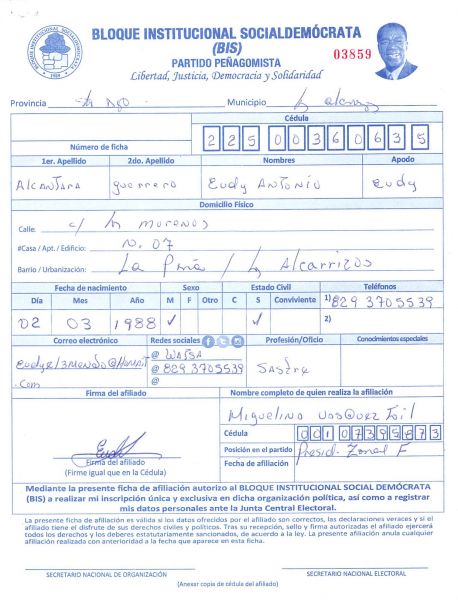 BLOQUE INSTITUCIONAL SOCIALDEMÓCRATA
(BIS)
PARTIDO PEÑAGOMISTA
Libertad, Justicia, Democracia y Solidaridad
03859
Provincia Municipio
Cédula
Número de ficha 22500360635
1er. Apellido 2do. Apellido Nombres Apodo
Alcantara guerrero Eudy Antonio Eudy
Domicilio Físico
Calle. c/ Morenos
#Casa / Apt. / Edificio: N. 07
Barrio / Urbanización: La Piña / Alcarrizos
Fecha de nacimiento Sexo Estado Civil Teléfonos
Día Mes Año M F Otro C S Conviviente 1) 829 3705539
02 03 1988 ✓ ✓ 2)
Correo electrónico Redes sociales Profesión/Oficio Conocimientos especiales
@ WAtSA
@ 829 3705539 Sastre
.com @
Firma del afiliado Nombre completo de quien realiza la afiliación
Miguelina Vasquez
Cédula
Posición en el partido Presid. Zonal F
Firma del afiliado
(Firme igual que en la Cédula)
Fecha de afiliación
Mediante la presente ficha de afiliación autorizo al BLOQUE INSTITUCIONAL SOCIAL DEMÓCRATA
(BIS) a realizar mi inscripción única y exclusiva en dicha organización política, así como a registrar
mis datos personales ante la Junta Central Electoral.
La presente ficha de afiliación en válida si los datos ofrecidos por el afiliado son correctos, las declaraciones veraces y si el
afiliado tiene el disfrute de sus derechos civiles y políticos. Tras su recepción, sello y firma autorizadas el afiliado ejercerá
todos los derechos y los deberes estatutariamente sancionados, de acuerdo a la ley. La presente afiliación anula cualquier
afiliación realizada con anterioridad a la fecha que aparece en esta ficha.
SECRETARIO NACIONAL DE ORGANIZACIÓN SECRETARIO NACIONAL ELECTORAL
(Anexar copia de cédula del afiliado)